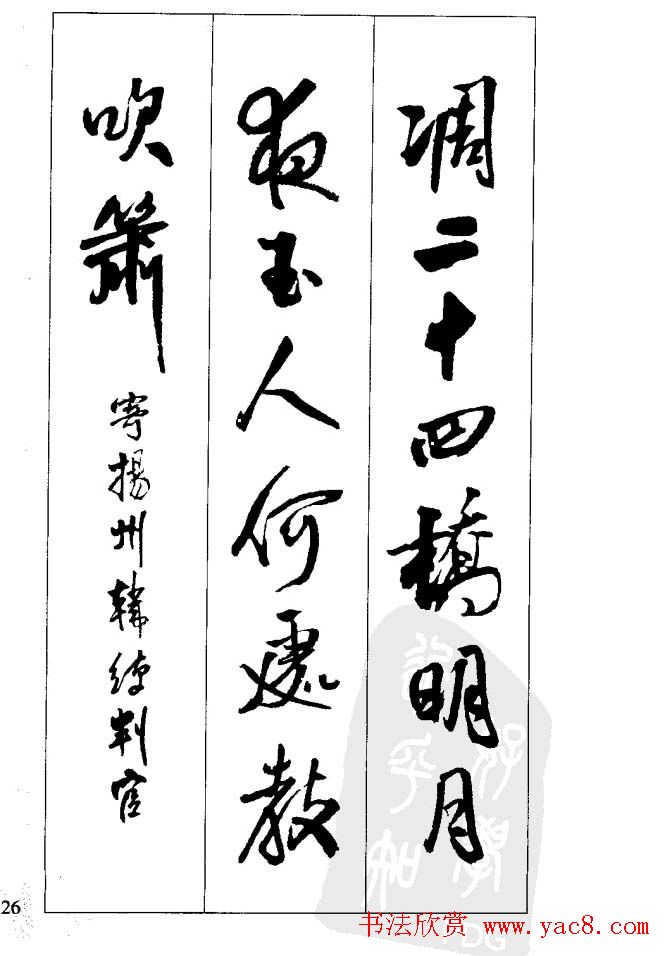 凋二十四橋明月
夜玉人何處教
吹簫
寄揚州韓綽判官
26
书法欣赏 www.yac8.com